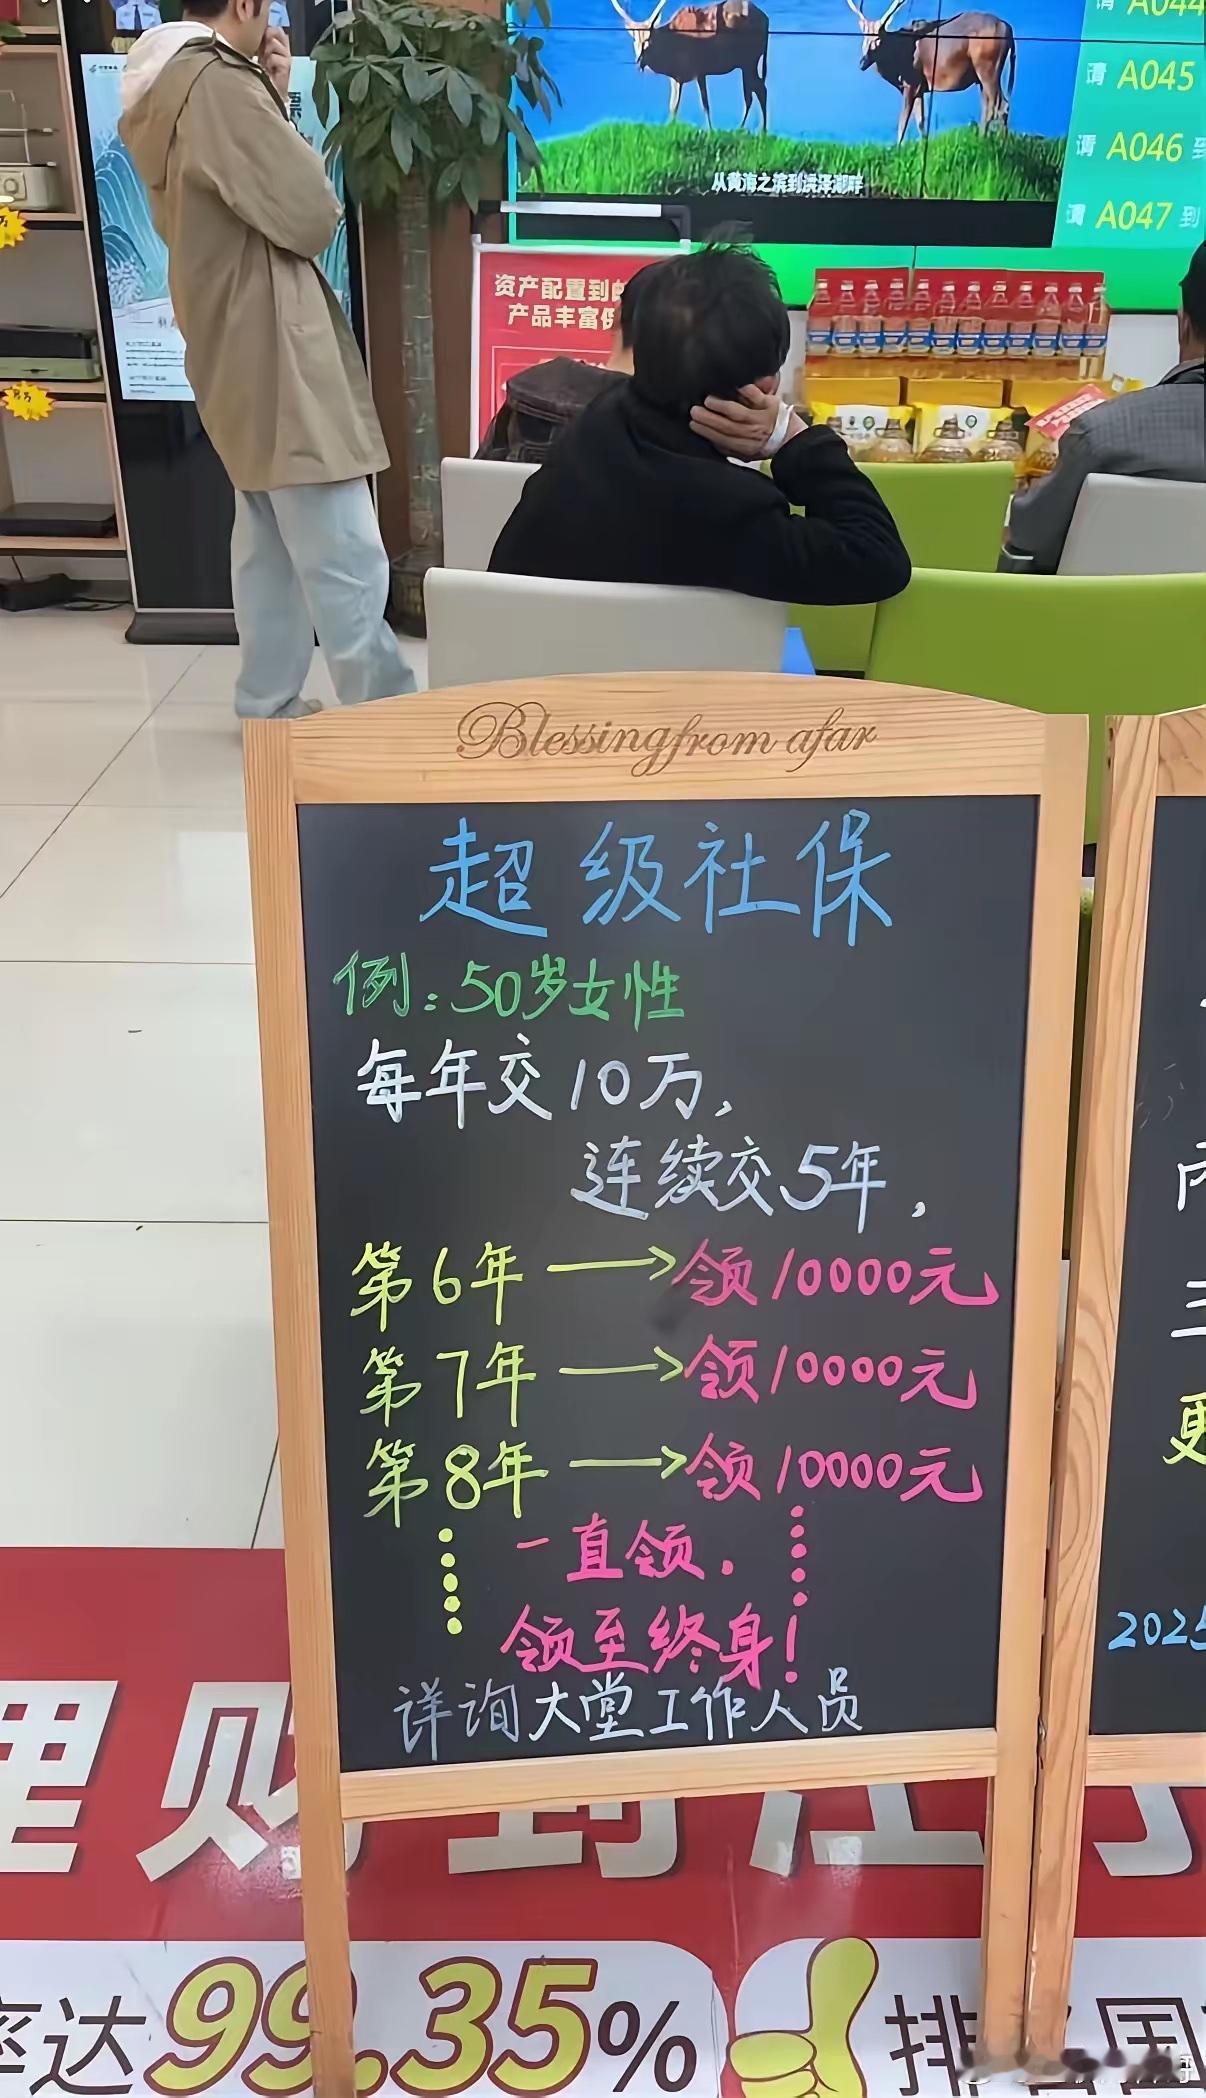 请 A044
请 A045
请 A046 到
请 A047 到
从黄海之滨到洪泽湖畔
资产配置到
产品丰富
Blessing from afar
超级社保
例:50岁女性
每年交10万,
连续交5年,
第6年 → 领10000元
第7年 → 领10000元
第8年 → 领10000元
一直领.
领至终身!
详询大堂工作人员
更
三
2025
理财到江
率达99.35%
排名国